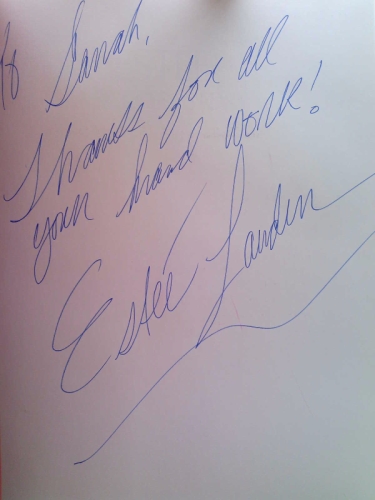 To Sarah,
Thanks for all
your hard work!
Estée Lauder